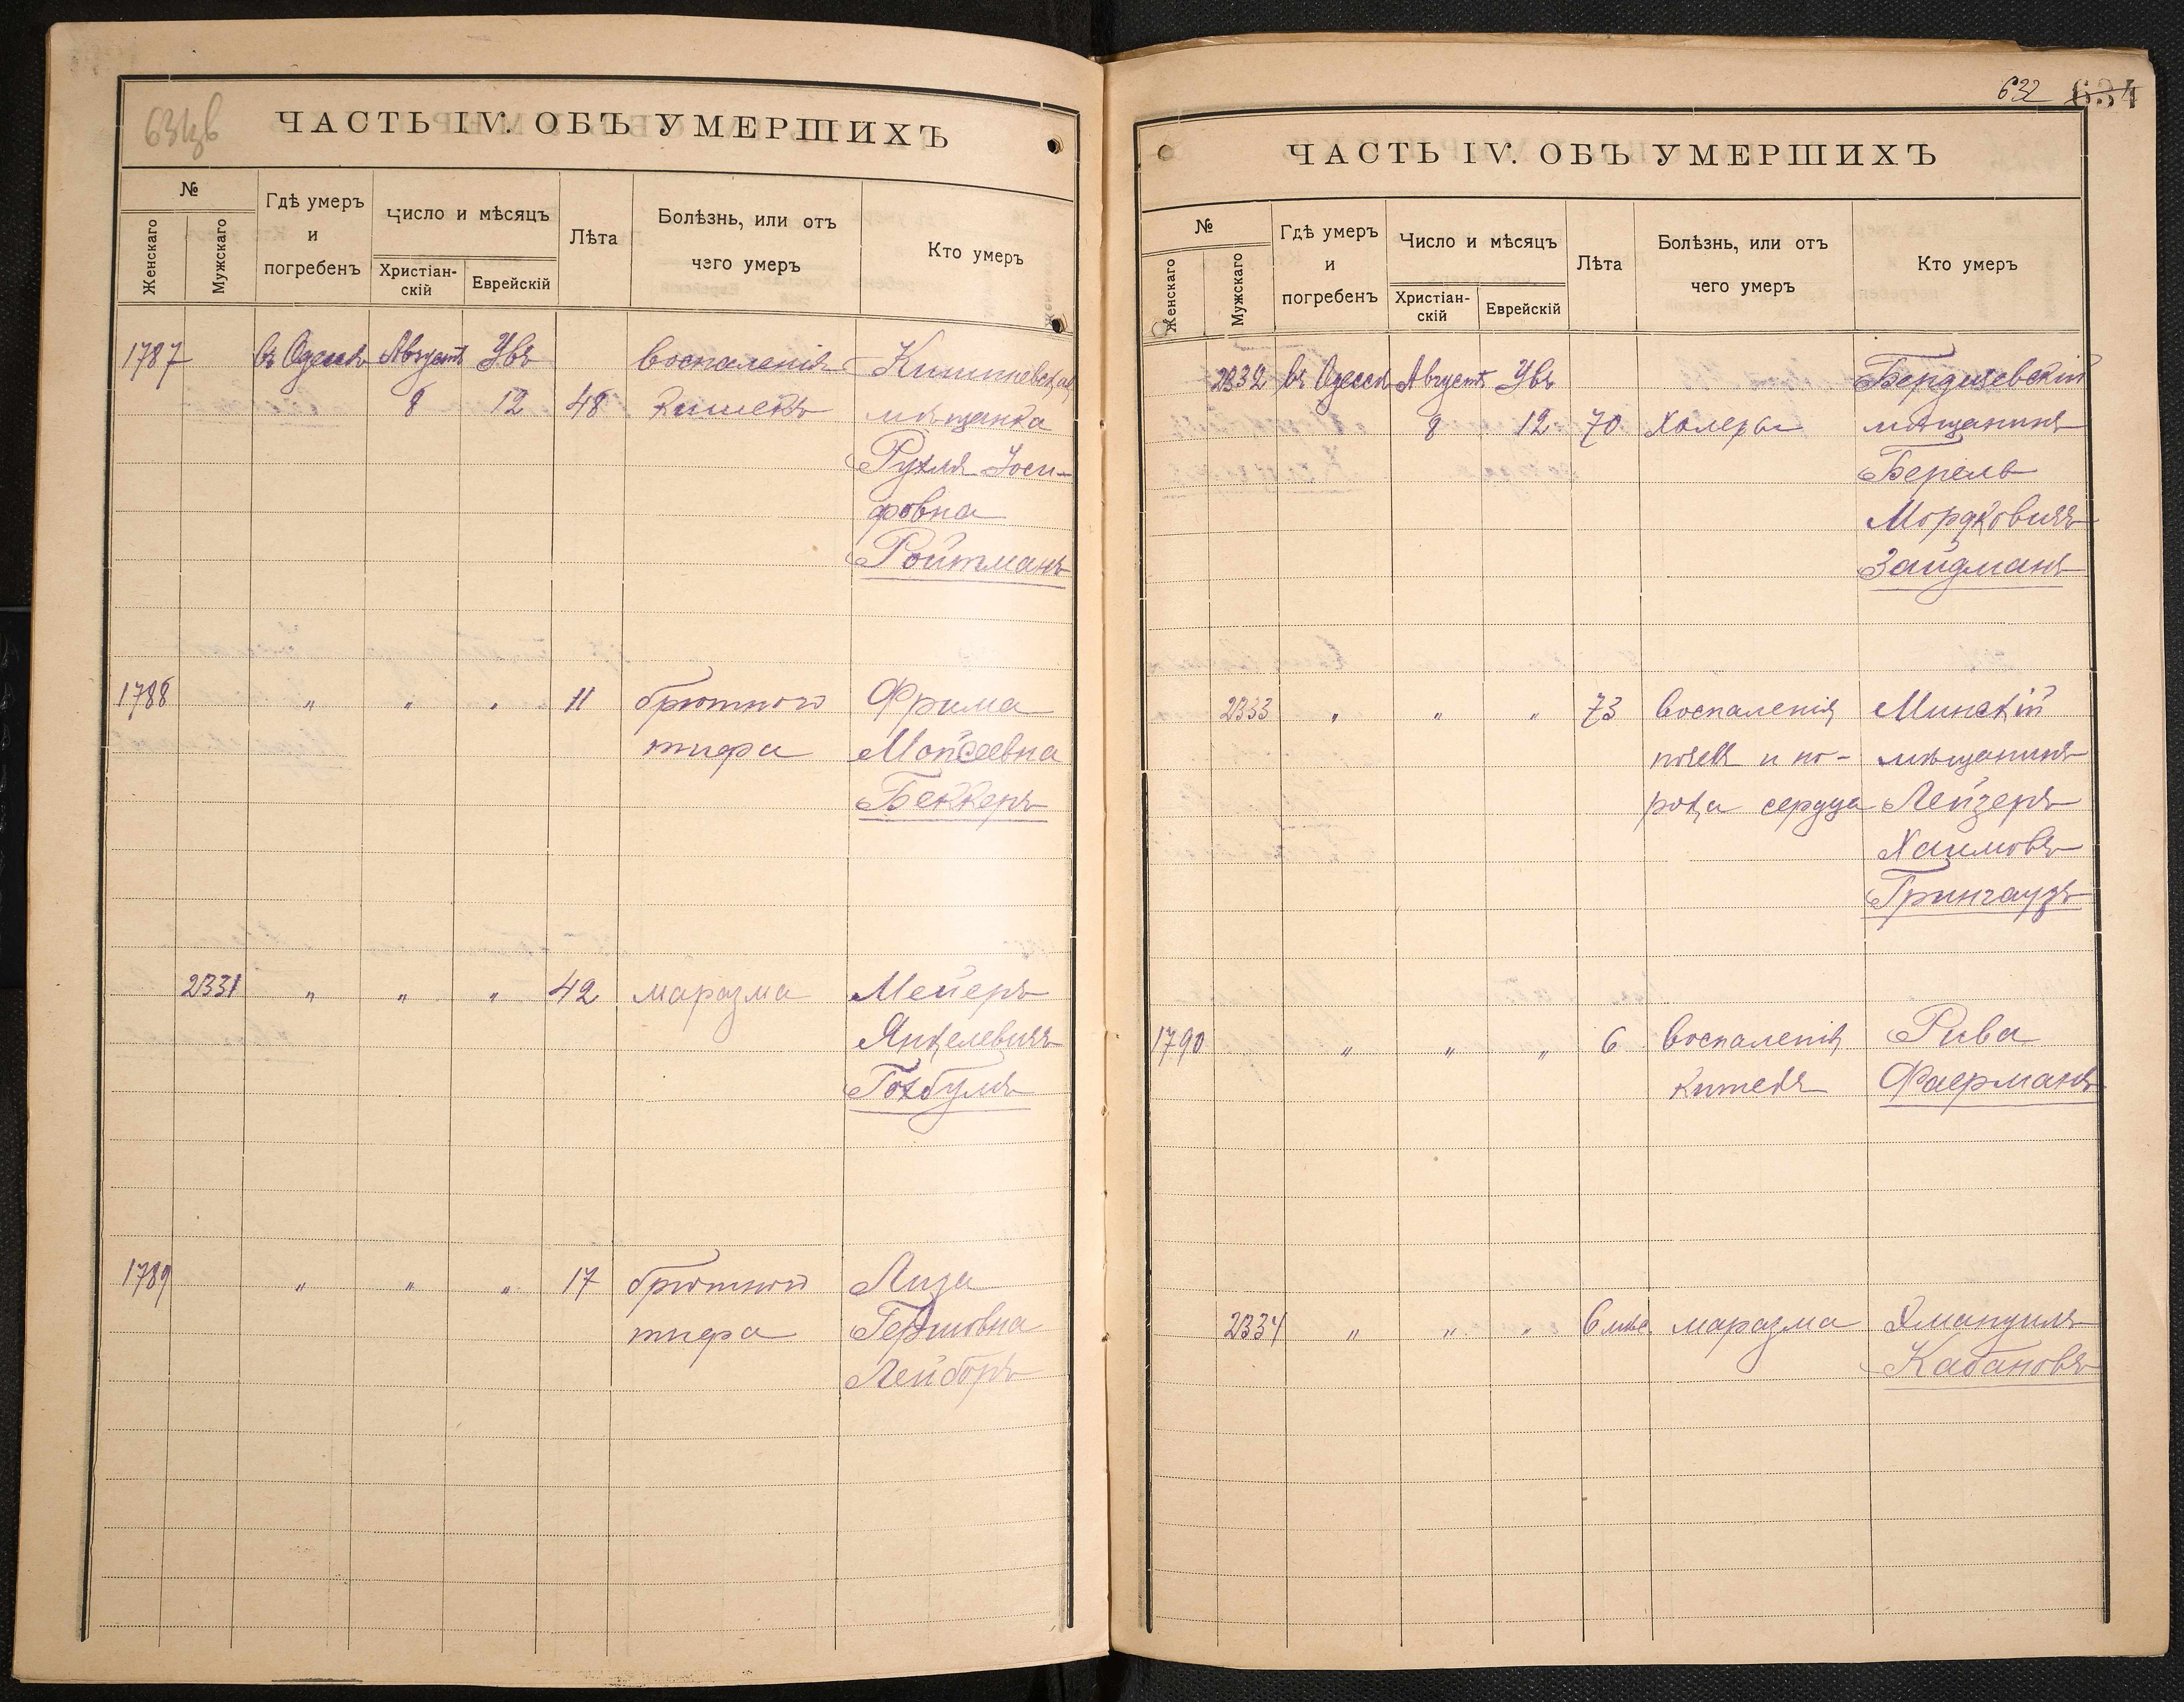 634зв
ЧАСТЬ IV. ОБЪ УМЕРШИХЪ
№
Женскаго
Мужскаго
Гдѣ умеръ
и
погребенъ
Число и мѣсяцъ
Христіан-
скій
Еврейскій
Лѣта
Болѣзнь, или отъ
чего умеръ
Кто умеръ
1787 въ Одессѣ Августъ Увъ воспаленія Кишиневская
8 12 48 кишекъ мѣщанка
Рухля Іоси-
фовна
Ройтманъ
1788 " " " 11 брюшного Фрима
тифа Мойсеевна
Беккеръ
2331 " " " 42 маразма Мейеръ
Янкелевичъ
Гохбумъ
1789 " " " 17 брюшного Лиза
тифа Гершовна
Лейборъ
632 634
ЧАСТЬ IV. ОБЪ УМЕРШИХЪ
№
Женскаго
Мужскаго
Гдѣ умеръ
и
погребенъ
Число и мѣсяцъ
Христіан-
скій
Еврейскій
Лѣта
Болѣзнь, или отъ
чего умеръ
Кто умеръ
2332 въ Одессѣ Августъ Увъ Бердичевскій
8 12 70 холеры мѣщанинъ
Берель
Мордковичъ
Зайдманъ
2333 " " " 73 воспаленія Минскій
почекъ и по- мѣщанинъ
рока сердца Лейзеръ
Хаимовъ
Грингаузъ
1790 " " " 6 воспаленія Рива
кишекъ Фаерманъ
2334 " " " 6 мѣс. маразма Эмануилъ
Кабановъ